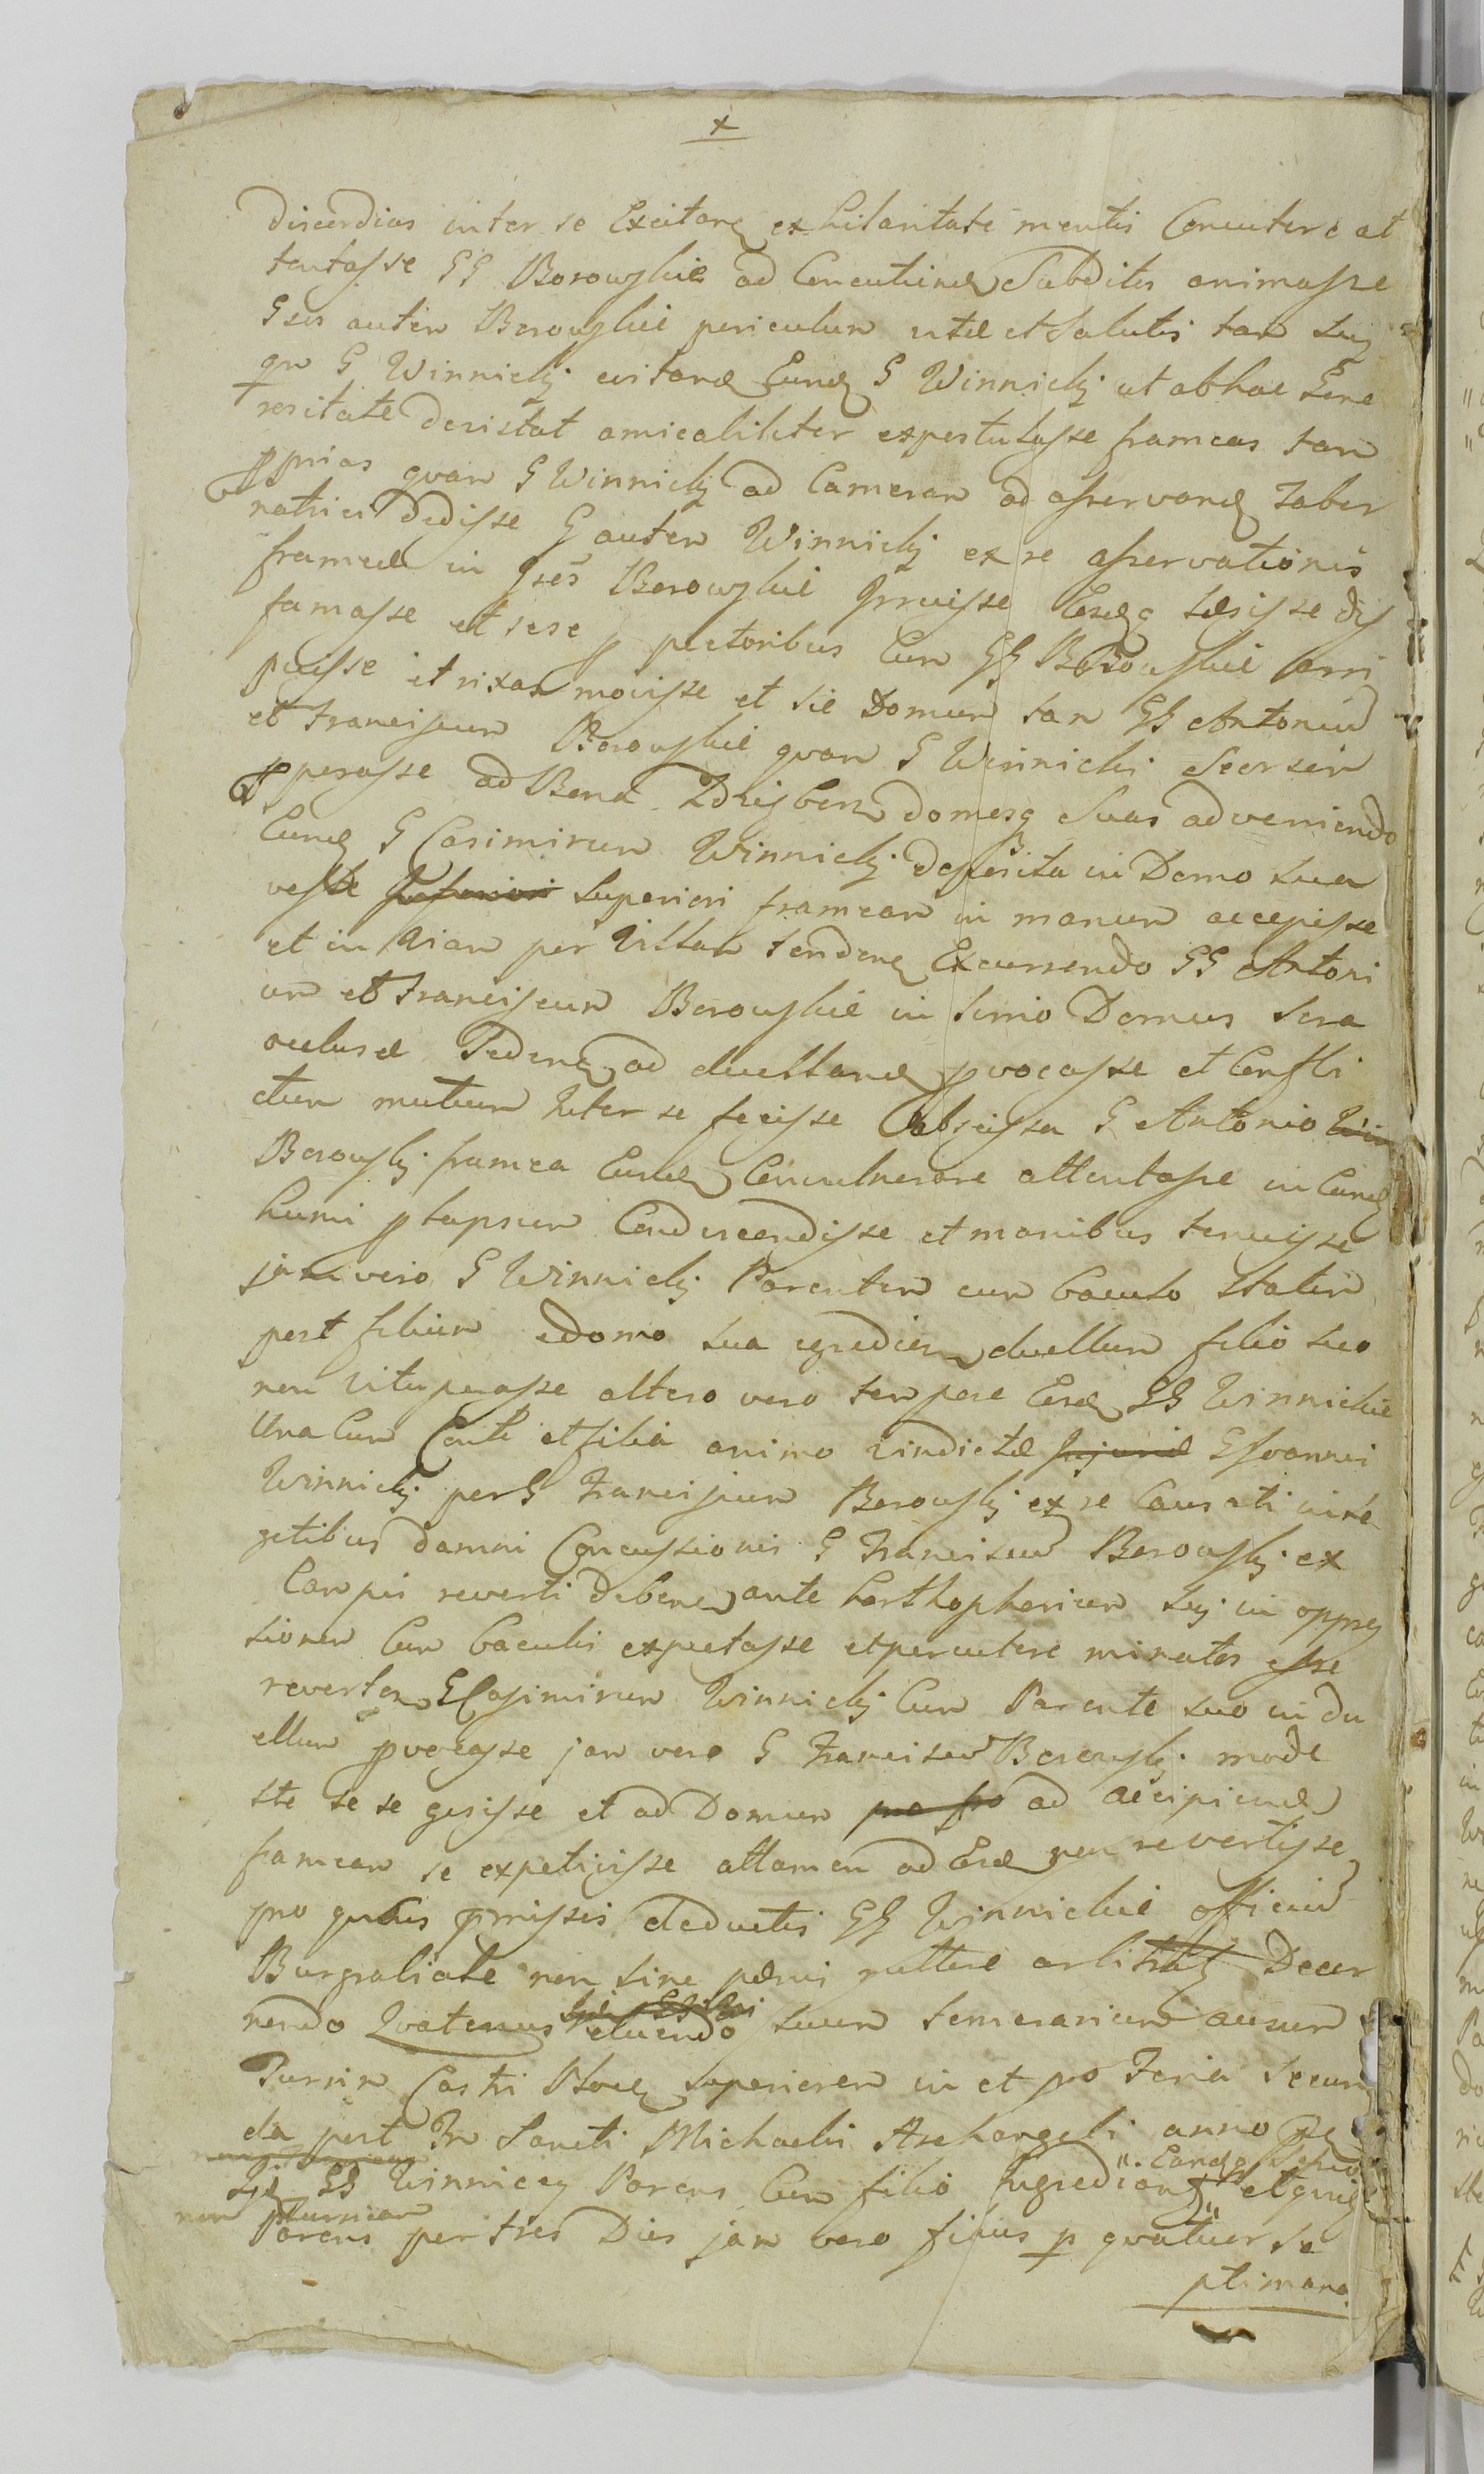 x
discordias inter se Excitare ex hilaritate mentis Concutere at
tentasse GG Borowskie ad Concutiend Subditos animasse
Gsos autem Borowskie periculum vitae et Salutis tam sui
qm G Winnickij evitand Eund G Winnickij ut ab hac Gene
rositate desistat amicabiliter expostulasse frameas tam
pprias quam G Winnickij ad Cameram ad asservand Taber
natrici dedisse G autem Winnickij ex re asservationis
frameae in Gsos Borowskie Irruisse Eosdq laesisse dif
famasse et sese p pectoribus Cum GG Borowskie arri
puisse et rixas movisse et sic Domum tam GG Antonium
et Franciscum Borowskie quam G Winnicki Seorsim
pperasse ad Bona domosq Suas adveniendo
Eund G Casimirum Winnickij deposita in Domo sua
veste Inferiori Superiori frameam in manum accepisse
et in Viam per Villam tendere Excurrendo GG Antoni
um et Franciscum Borowskie in Domus Sera
occlusae ad duelland pvocasse et Confli
ctum mutuum Inter se fecisse Abscissa G Antonio Win
Borowskij framea Eund Convulnerare attentasse in Eund
humi plapsum Condescendisse et manibus tenuisse
jam vero G Winnickij Parentem cum baculo statim
post filium e domo sua egredien duellum filio suo
non vituperasse altero vero tempore Eosd GG Winnickie
Una Cum et filia animo vindictae Injuriae G Joanni
Winnickij per G Franciscum Borowskij ex re Causati in se
getibus damni Concussionis G Franciscum Borowskij ex
Campis reverti deben ante sui in oppres
sionem Cum baculis expectasse et percutere minatos esse
reverten G Casimirum Winnickij Cum Parente suo in du
ellum pvocasse jam vero G Franciscum Borowskij mode
ste se se gessisse et ad Domum pro fra ad accipiend
frameam se expetivisse attamen ad Eosd non revertisse
pro quibus pmissis deductis GG Winnickie officium
Burgrabiale non sine arbitrat Decer
nendo Quatenus eluendo suum temerarium ausum
Turrim Castri superiorem in et pro Feria Secun
da post Fm Sancti Michaelis Archangeli anno
". Eandq
GG Winnicey Parens Cum filio Ingrediant" et
Parens per tres Dies jam vero filius p quatuor Se
ptimana